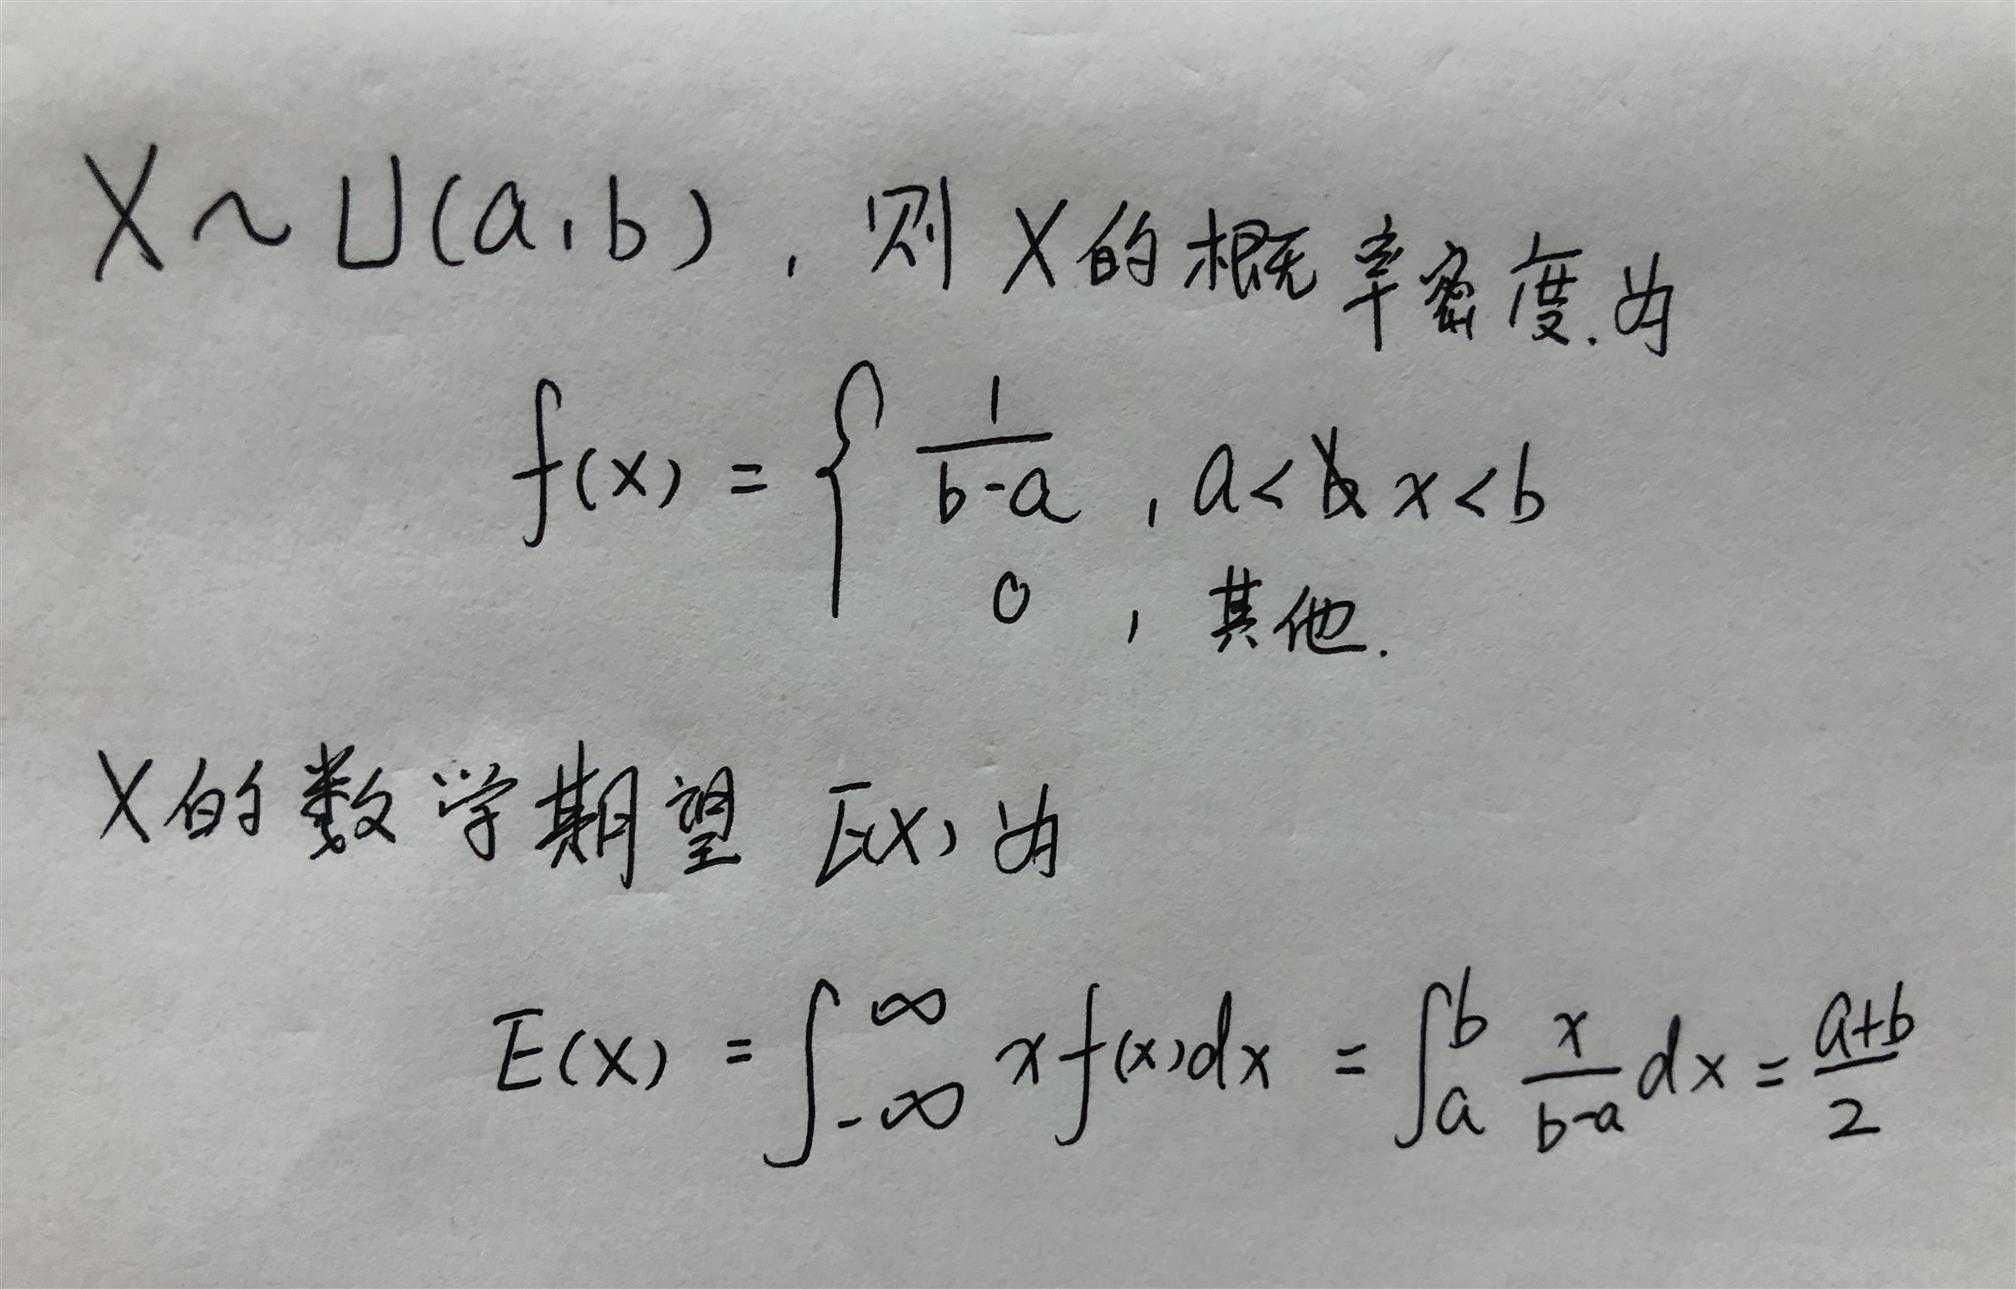 X ~ U(a,b), 则 X 的概率密度.为
f(x) = { 1/(b-a), a< x<b
0, 其他.
X的数学期望 E(X) 为
E(X) = ∫_{-∞}^{∞} x f(x)dx = ∫_a^b x/(b-a) dx = (a+b)/2